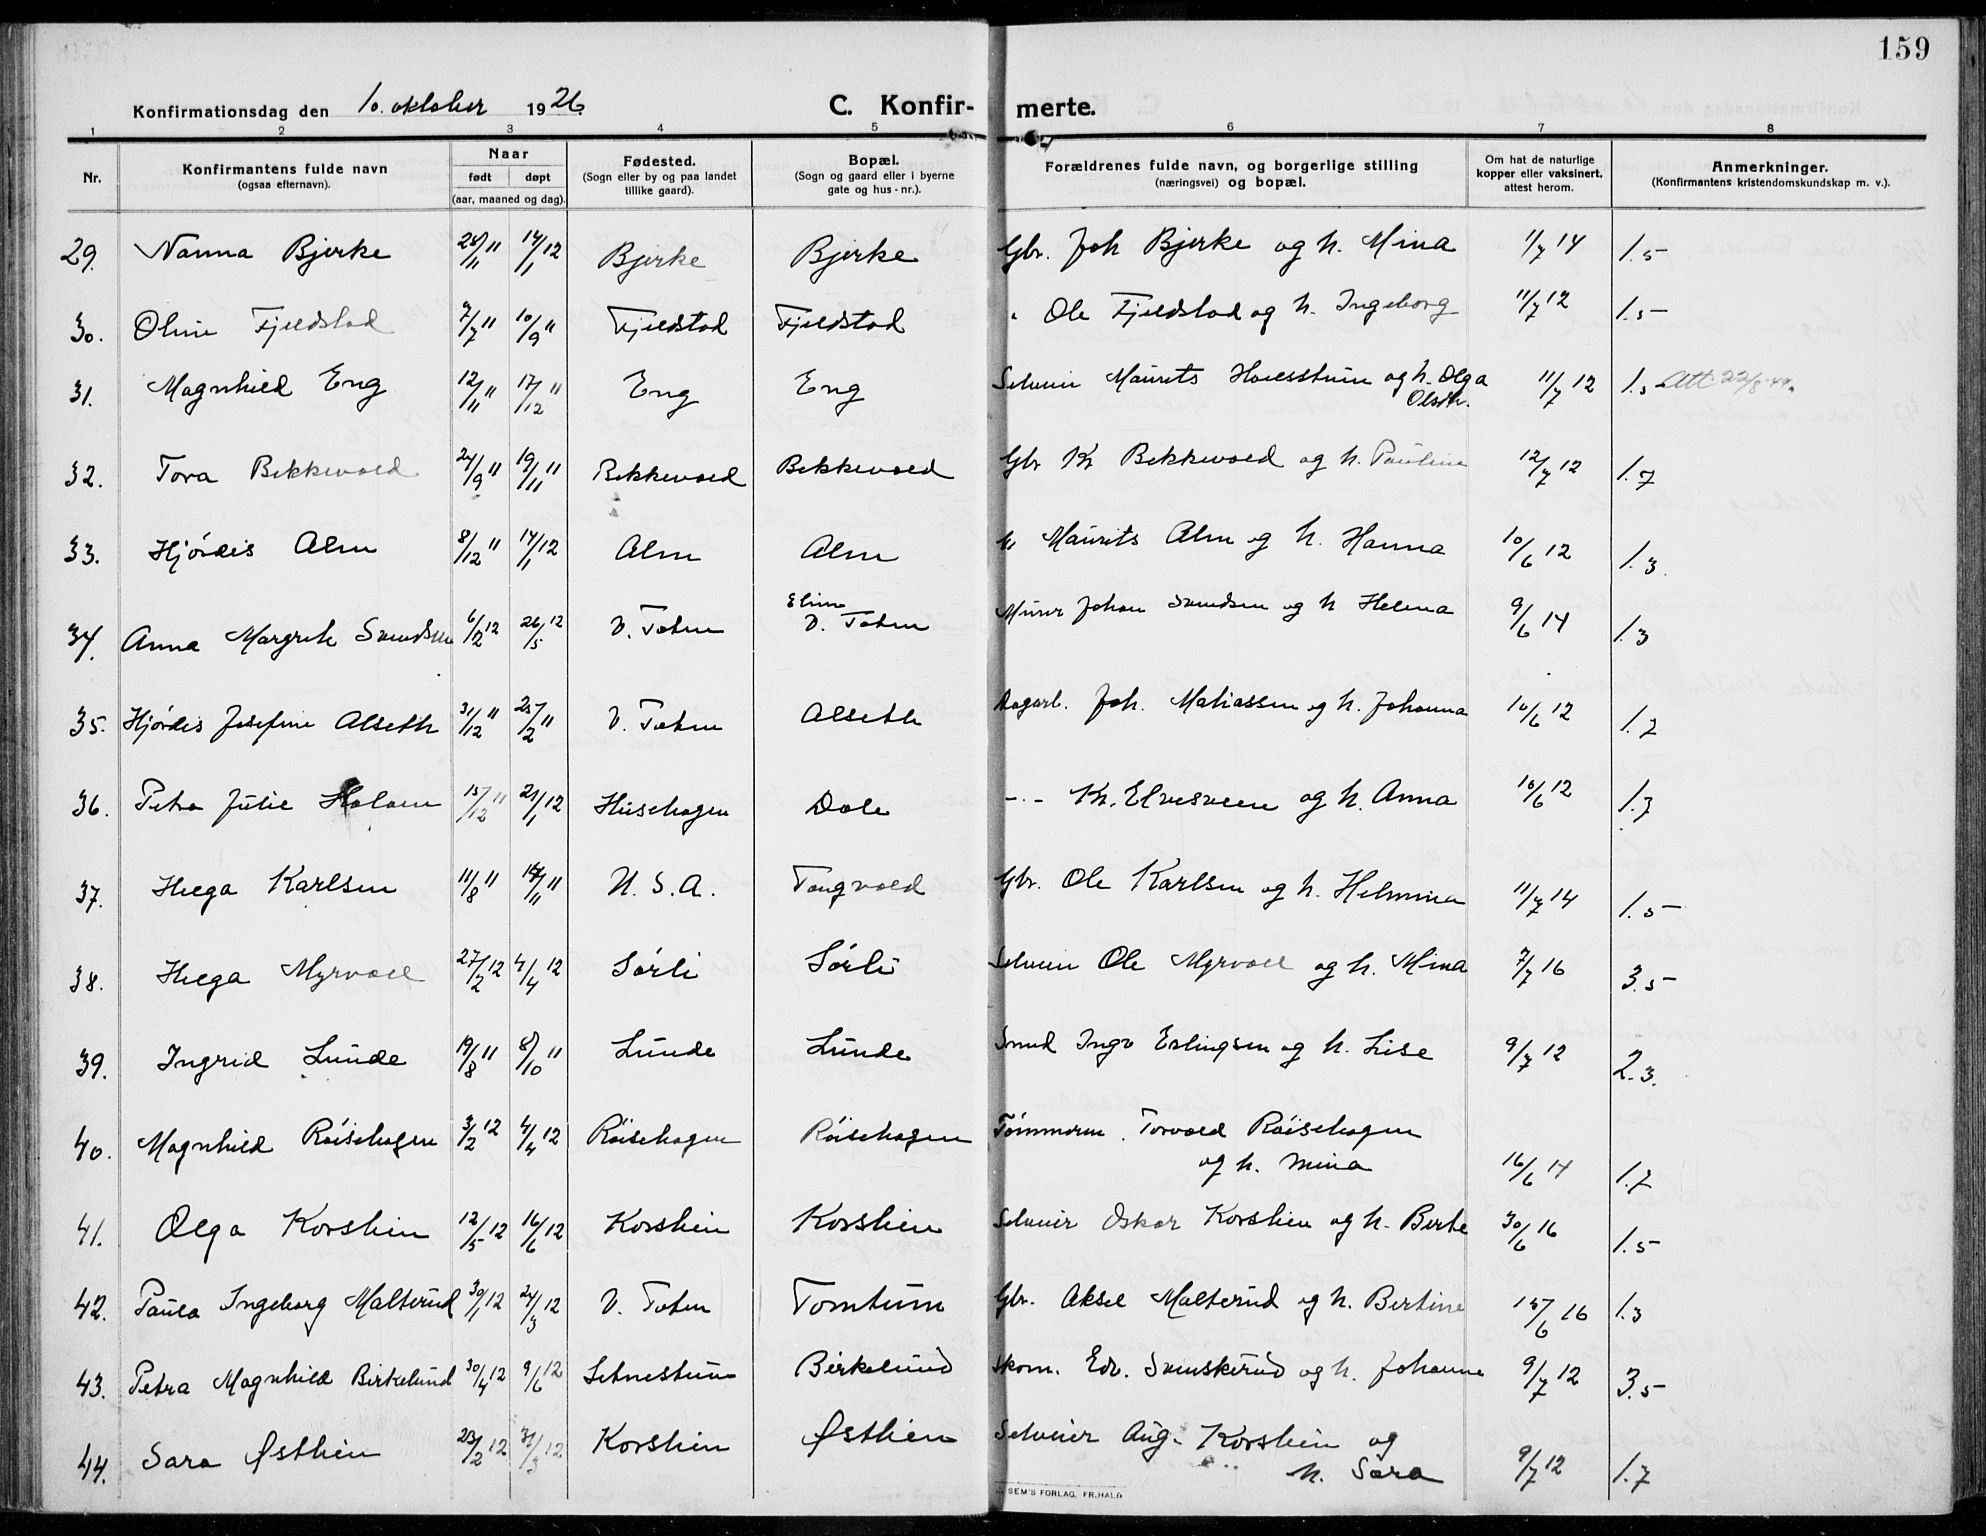 159
Konfirmationsdag den 10. oktober 1926. C. Konfir- merte.
1 2 3 4 5 6 7 8
Nr. Konfirmantens fulde navn (ogsaa efternavn). Naar født døpt (aar, maaned og dag). Fødested. (Sogn eller by og paa landet tillike gaard). Bopæl. (Sogn og gaard eller i byerne gate og hus-nr.). Forældrenes fulde navn, og borgerlige stilling (næringsvei) og bopæl. Om hat de naturlige kopper eller vaksinert, attest herom. Anmerkninger. (Konfirmantens kristendomskundskap m. v.).
29. Nanna Bjerke 28/11 11 14/1 12 Bjerke Bjerke Gbr. Joh Bjerke og h. Mina 11/7 14 1.5
30. Oline Fjeldstad 7/7 11 10/9 11 Fjeldstad Fjeldstad " Ole Fjeldstad og h. Ingeborg 11/7 12 1.5
31. Magnhild Eng 12/11 11 17/12 11 Eng Eng Selveier Maurits og h. Olga Olsdtr. 11/7 12 1.5 Att 22/8-44
32. Tora Bekkevold 24/9 11 19/11 11 Bekkevold Bekkevold Gbr Kr Bekkevold og h. Pauline 12/7 12 1.7
33. Hjørdis Alm 8/12 11 14/1 12 Alm Alm " Maurits Alm og h. Hanna 10/6 12 1.3.
34. Anna Margrete Svendsen 6/2 12 26/5 12 V. Toten Elim V. Toten Murer Johan Svendsen og h Helena 9/6 14 1.3
35. Hjørdis Josefine Alseth 31/12 11 25/2 11 V. Toten Alseth Dagarb. Joh. Matiassen og h. Johanna 10/6 12 1.7
36. Petra Julie Holom 15/12 11 21/1 12 Husehagen Dale -"- Kr. Elvesveen og h. Anna 10/6 12 1.7
37. Helga Karlsen 11/8 11 /11 11 U. S. A. Tongvold Gbr. Ole Karlsen og h. Helmina 11/7 14 1.5
38. Helga Myrvoll 27/2 12 4/4 12 Sørli Sørli Selveier Ole Myrvoll og h. Mina 7/7 16 3.5
39. Ingrid Lunde 19/8 11 8/10 11 Lunde Lunde Smed Ingv Erlingsen og h. Lise 9/7 12 2.3.
40. Magnhild Røisehagen 3/2 12 4/4 12 Røisehagen Røisehagen Tømmerm. Torvald Røisehagen
og h. Mina 16/6 14 1.7
41. Olga Korslien 12/5 12 16/6 12 Korslien Korslien Selveier Oskar Korslien og h. Berte 30/6 16 1.5
42. Paula Ingeborg Malterud 30/1 12 24/3 12 V. Toten Tomtum Gbr. Aksel Malterud og h. Bertine 15/6 16 1.3
43. Petra Magnhild Birkelund 30/4 12 9/6 12 Birkelund Skom. Edv. Svenskerud og h. Johanne 9/7 12 3.5
44. Sara Østlien 23/2 12 31/3 12 Korslien Østlien Selveier Aug. Korslien og
h. Sara 9/7 12 1.7
SEM'S FORLAG, FR.HALD